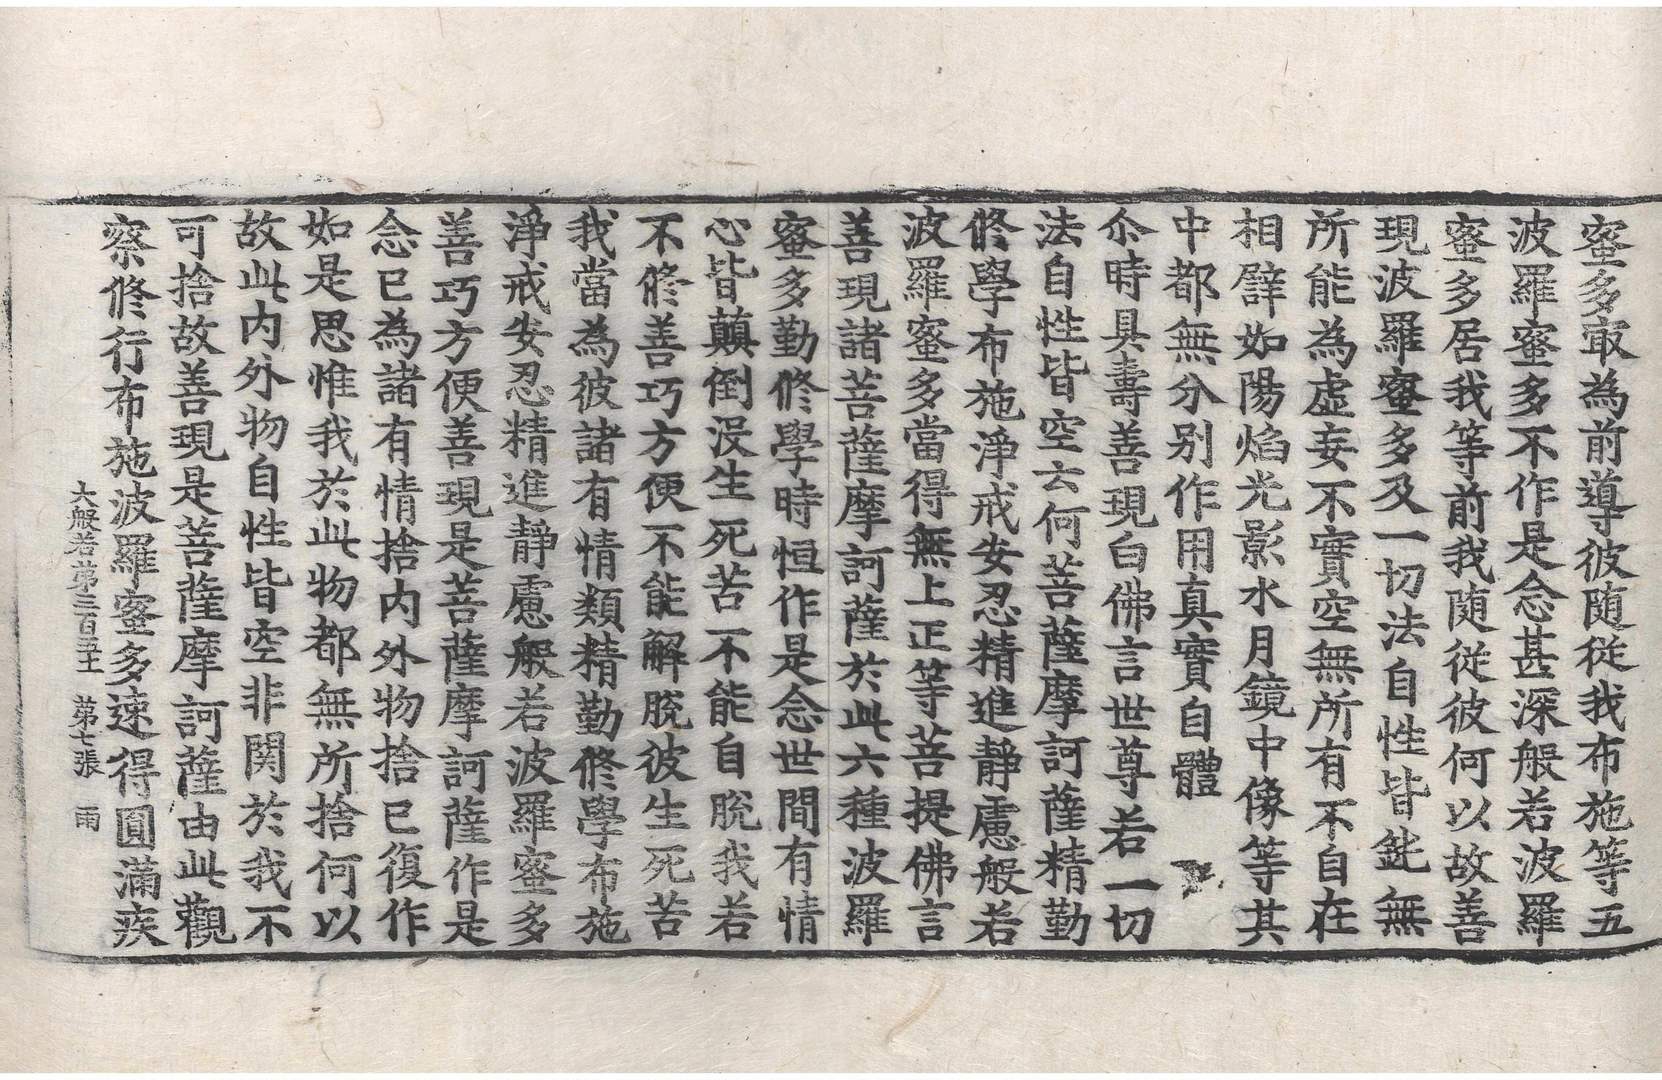 蜜多㝡為前導彼随從我布施等五
波羅蜜多不作是念甚深般若波羅
蜜多居我等前我随從彼何以故善
現波羅蜜多及一切法自性皆鈍無
所能為虛妄不實空無所有不自在
相譬如陽焰光影水月鏡中像等其
中都無分别作用真實自體
尒時具壽善現白佛言世尊若一切
法自性皆空云何菩薩摩訶薩精勤
修學布施淨戒安忍精進靜慮般若
波羅蜜多當得無上正等菩提佛言
善現諸菩薩摩訶薩於此六種波羅
蜜多勤修學時恒作是念世間有情
心皆顛倒沒生死苦不能自脫我若
不修善巧方便不能解脫彼生死苦
我當為彼諸有情類精勤修學布施
淨戒安忍精進靜慮般若波羅蜜多
善巧方便善現是菩薩摩訶薩作是
念已為諸有情捨内外物捨已復作
如是思惟我於此物都無所捨何以
故此内外物自性皆空非関於我不
可捨故善現是菩薩摩訶薩由此觀
察修行布施波羅蜜多速得圓滿疾
大般若第三百五十 第七張 雨